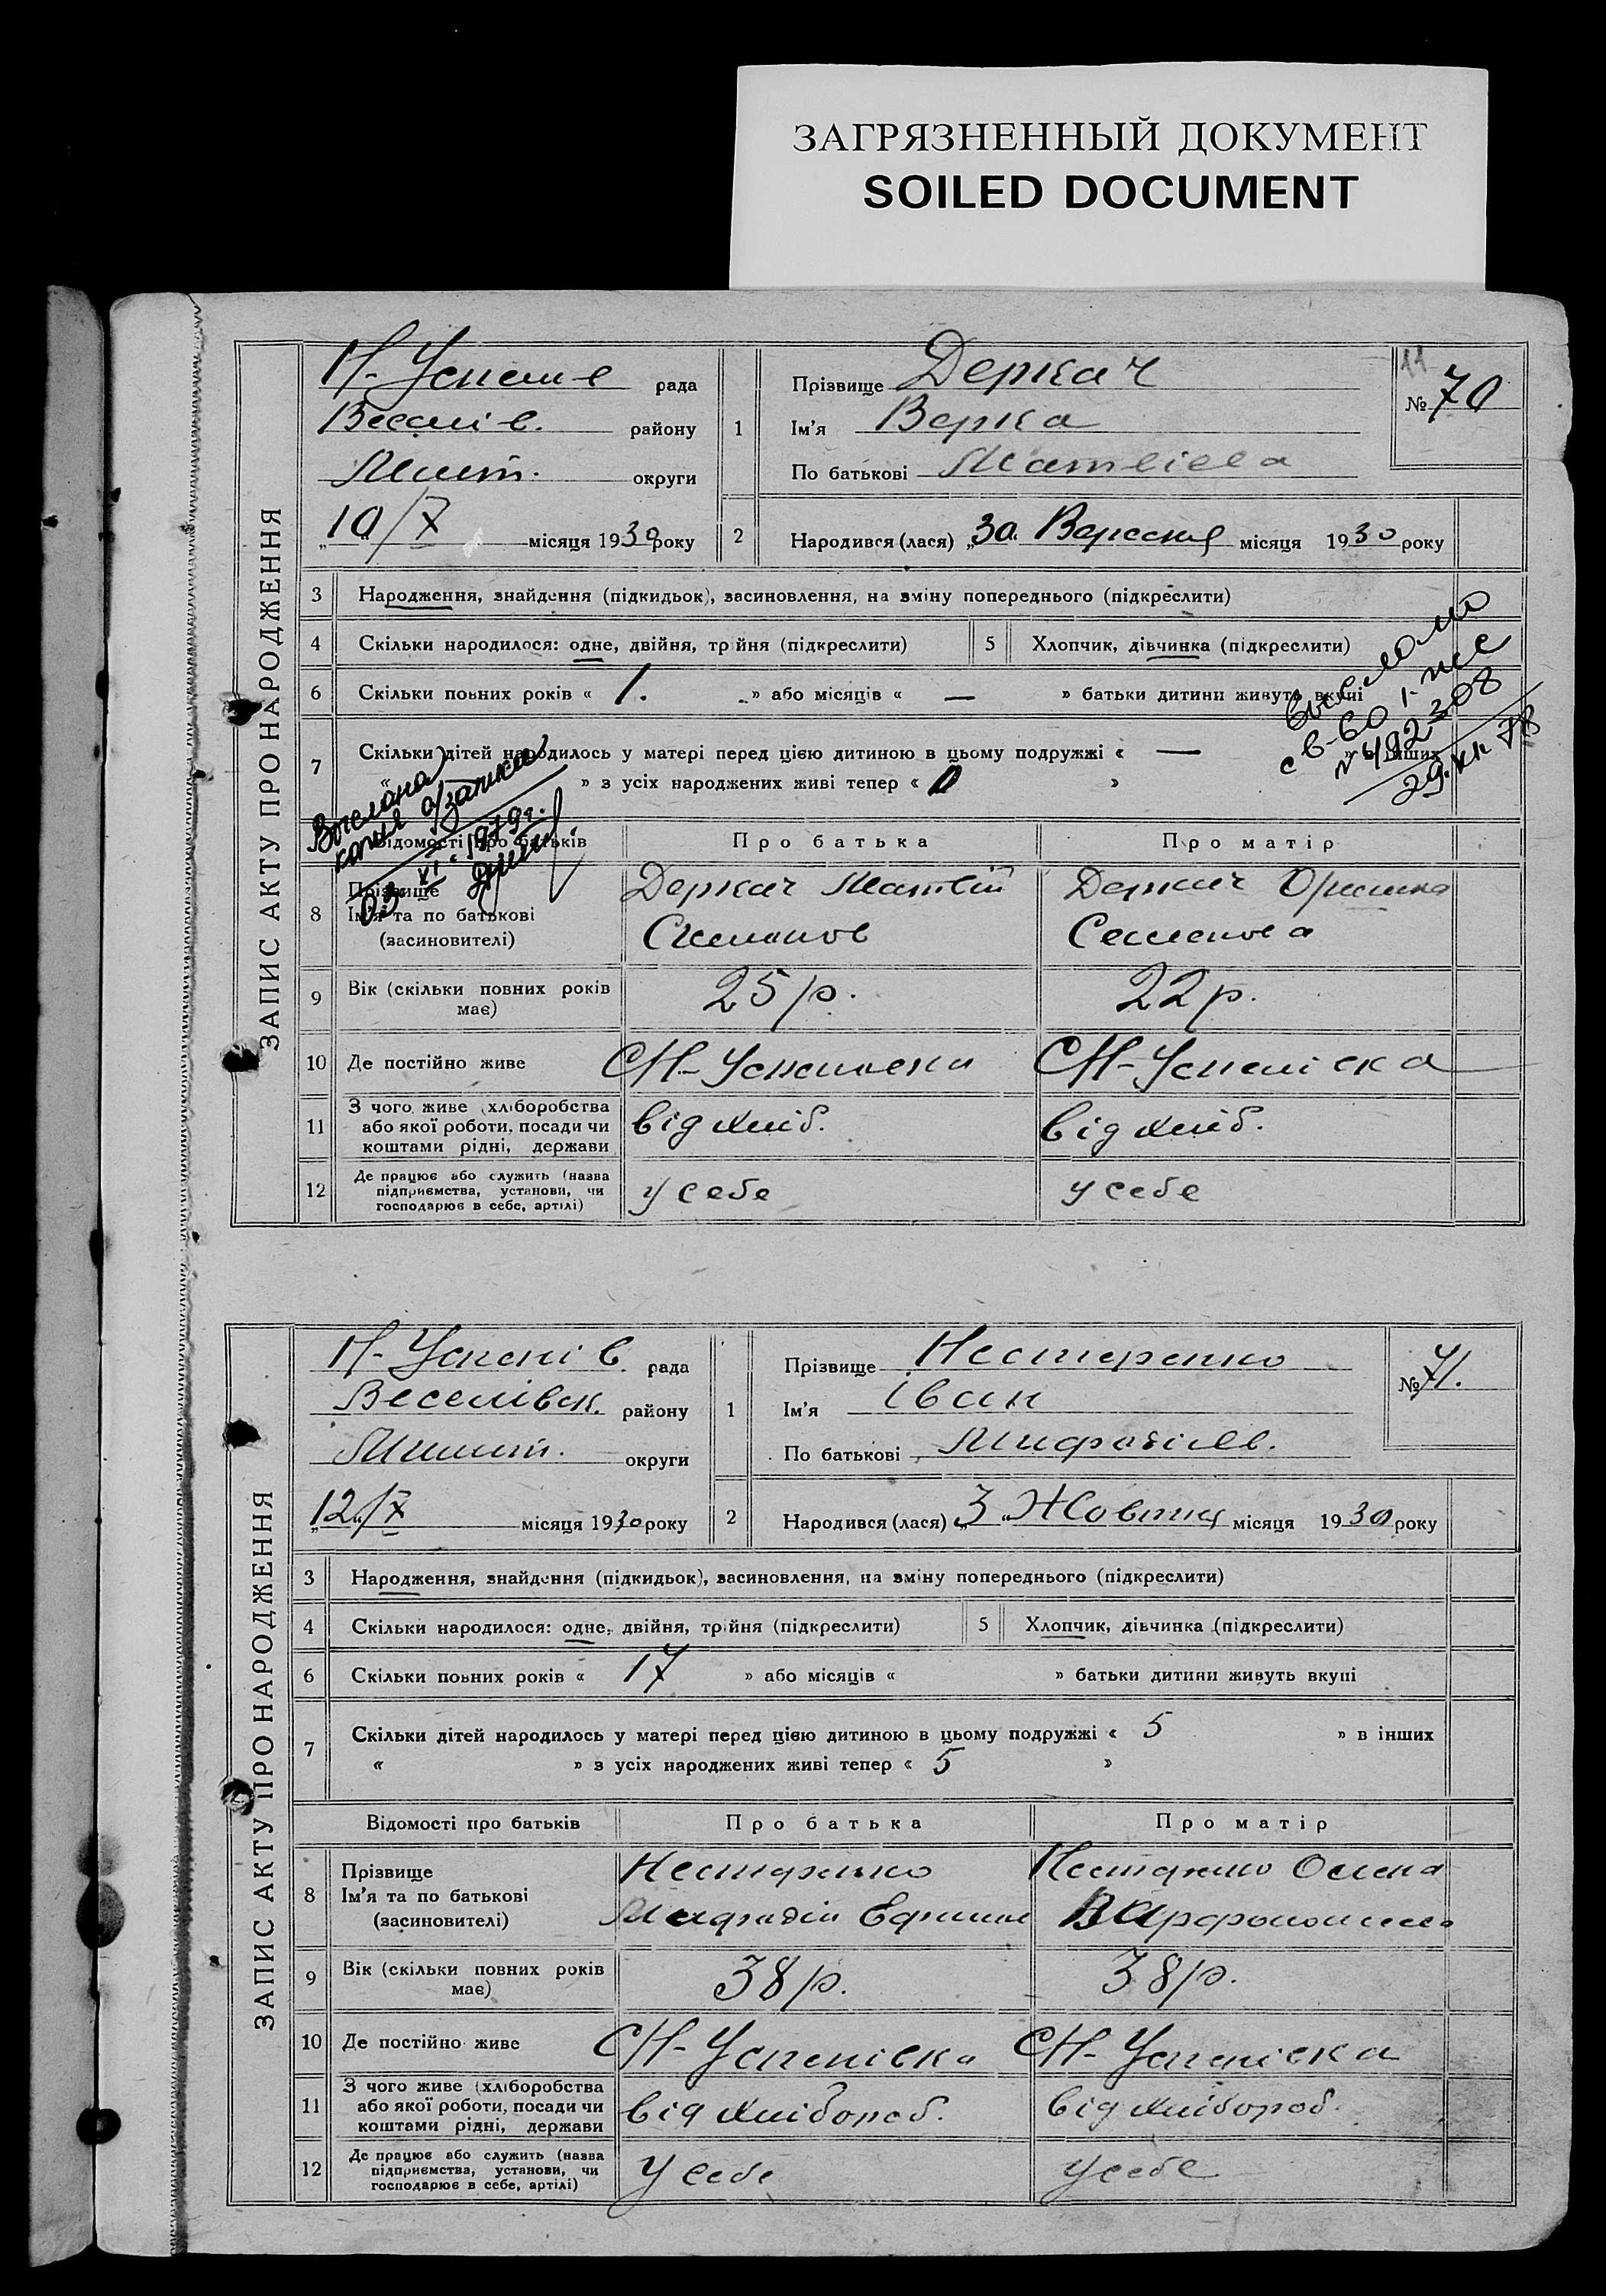 ЗАГРЯЗНЕННЫЙ ДОКУМЕНТ
SOILED DOCUMENT
ЗАПИС АКТУ ПРО НАРОДЖЕННЯ
Н- рада
району
округи
10/X місяця 1930 року
11
№ 70
1
Прізвище Деркач
Ім'я Верка
По батькові
2
Народився (лася) „30. Вересня місяця 1930 року
3 Народження, знайдення (підкидьок), засиновлення, на зміну попереднього (підкреслити)
4 Скільки народилося: одне, двійня, трійня (підкреслити)
5 Хлопчик, дівчинка (підкреслити)
6 Скільки повних років « 1. » або місяців « — » батьки дитини живуть вкупі
7 Скільки дітей народилось у матері перед цією дитиною в цьому подружжі « — » в інших
« » з усіх народжених живі тепер « 0 »
с в-во 1-
№ 492308
29. 78
Выслана
копия а/записи
03 VI. 1979г.
Відомості про батьків
Про батька
Про матір
8 Прізвище
Ім'я та по батькові
(засиновителі)
Деркач Матвій
Деркач
Семенова
9 Вік (скільки повних років має)
25 р.
22 р.
10 Де постійно живе
СН-Успенівка
СН-Успенівка
11 З чого живе (хліборобства або якої роботи, посади чи коштами рідні, держави
від хліб.
від хліб.
12 Де працює або служить (назва підприємства, установи, чи господарює в себе, артілі)
у себе
у себе
ЗАПИС АКТУ ПРО НАРОДЖЕННЯ
Н-Успенів. рада
Веселівск. району
округи
12/X місяця 1930 року
№ 71.
1
Прізвище Нестеренко
Ім'я Іван
По батькові
2
Народився (лася) „3" Жовтня місяця 1930 року
3 Народження, знайдення (підкидьок), засиновлення, на зміну попереднього (підкреслити)
4 Скільки народилося: одне, двійня, трійня (підкреслити)
5 Хлопчик, дівчинка (підкреслити)
6 Скільки повних років « 17 » або місяців « » батьки дитини живуть вкупі
7 Скільки дітей народилось у матері перед цією дитиною в цьому подружжі « 5 » в інших
« » з усіх народжених живі тепер « 5 »
Відомості про батьків
Про батька
Про матір
8 Прізвище
Ім'я та по батькові
(засиновителі)
Нестеренко
Нестеренко Олена
9 Вік (скільки повних років має)
38 р.
38 р.
10 Де постійно живе
СН-Успенівка
СН-Успенівка
11 З чого живе (хліборобства або якої роботи, посади чи коштами рідні, держави
від хлібороб.
від хлібороб.
12 Де працює або служить (назва підприємства, установи, чи господарює в себе, артілі)
у себе
у себе